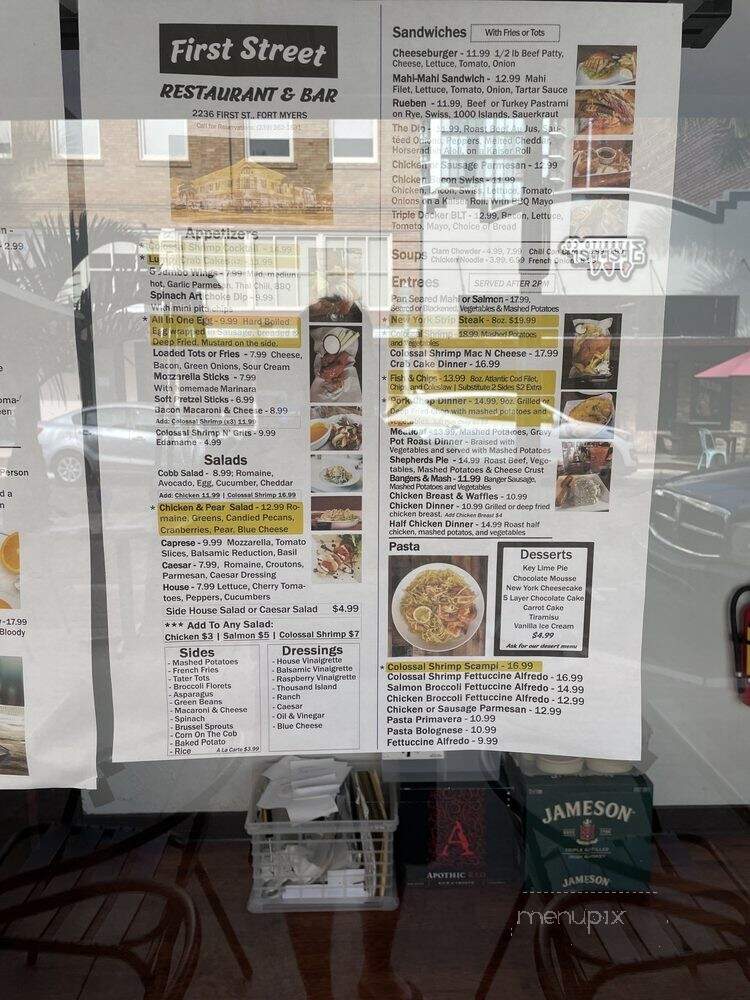 First Street
RESTAURANT & BAR
2236 FIRST ST., FORT MYERS
Call for Reservations: (239)
Appetizers
* Colossal Shrimp Cocktail - 14.99
* Crab Cakes
Jumbo Wings - 7.99 Mild, medium
hot, Garlic Parmesan, Thai Chili, BBQ
Spinach Art choke Dip - 9.99
With mini pita chips
* All In One Egg - 9.99 Hard Boiled
Egg wrapped in Sausage, breaded &
Deep Fried, Mustard on the side.
Loaded Tots or Fries - 7.99 Cheese,
Bacon, Green Onions, Sour Cream
Mozzarella Sticks - 7.99
With Homemade Marinara
Soft Pretzel Sticks - 6.99
Bacon Macaroni & Cheese - 8.99
Add: Colossal Shrimp (x3) 11.99
Colossal Shrimp N' Grits - 9.99
Edamame - 4.99
Salads
Cobb Salad - 8.99; Romaine,
Avocado, Egg, Cucumber, Cheddar
Add: Chicken 11.99 | Colossal Shrimp 16.99
* Chicken & Pear Salad - 12.99 Ro-
maine, Greens, Candied Pecans,
Cranberries, Pear, Blue Cheese
Caprese - 9.99 Mozzarella, Tomato
Slices, Balsamic Reduction, Basil
Caesar - 7.99, Romaine, Croutons,
Parmesan, Caesar Dressing
House - 7.99 Lettuce, Cherry Toma-
toes, Peppers, Cucumbers
Side House Salad or Caesar Salad $4.99
*** Add To Any Salad:
Chicken $3 | Salmon $5 | Colossal Shrimp $7
Sides
- Mashed Potatoes
- French Fries
- Tater Tots
- Broccoli Florets
- Asparagus
- Green Beans
- Macaroni & Cheese
- Spinach
- Brussel Sprouts
- Corn On The Cob
- Baked Potato
- Rice A La Carte $3.99
Dressings
- House Vinaigrette
- Balsamic Vinaigrette
- Raspberry Vinaigrette
- Thousand Island
- Ranch
- Caesar
- Oil & Vinegar
- Blue Cheese
Sandwiches With Fries or Tots
Cheeseburger - 11.99 1/2 lb Beef Patty,
Cheese, Lettuce, Tomato, Onion
Mahi-Mahi Sandwich - 12.99 Mahi
Filet, Lettuce, Tomato, Onion, Tartar Sauce
Rueben - 11.99, Beef or Turkey Pastrami
on Rye, Swiss, 1000 Islands, Sauerkraut
The Dip - 11.99, Roast Beef Au Jus, Sau-
téed Onions, Peppers, Melted Cheddar,
Horseradish Aioli, on a Kaiser Roll
Chicken or Sausage Parmesan - 12.99
Chicken Bacon Swiss - 11.99
Chicken, Bacon, Swiss, Lettuce, Tomato
Onions on a Kaiser Roll with BBQ Mayo
Triple Decker BLT - 12.99, Bacon, Lettuce,
Tomato, Mayo, Choice of Bread
Soups Clam Chowder - 4.99, 7.99 Chili
Chicken Noodle - 3.99, 6.99 French Onion
Entrees SERVED AFTER 2PM
Pan Seared Mahi or Salmon - 17.99,
Seared or Blackened, Vegetables & Mashed Potatoes
* New York Strip Steak - 8oz. $19.99
* Colossal Shrimp - 18.99 Mashed Potatoes
and Vegetables
Colossal Shrimp Mac N Cheese - 17.99
Crab Cake Dinner - 16.99
* Fish & Chips - 13.99 8oz. Atlantic Cod Filet,
Chips, and Coleslaw | Substitute 2 Sides $2 Extra
* Pork Chop Dinner - 14.99, 9oz. Grilled or
Deep fried chop with mashed potatoes and
vegetables
Meatloaf - 13.99, Mashed Potatoes, Gravy
Pot Roast Dinner - Braised with
Vegetables and served with Mashed Potatoes
Shepherds Pie - 14.99 Roast Beef, Vege-
tables, Mashed Potatoes & Cheese Crust
Bangers & Mash - 11.99 Banger Sausage,
Mashed Potatoes and Vegetables
Chicken Breast & Waffles - 10.99
Chicken Dinner - 10.99 Grilled or deep fried
chicken breast. Add Chicken Breast $4
Half Chicken Dinner - 14.99 Roast half
chicken, mashed potatos, and vegetables
Pasta
Desserts
Key Lime Pie
Chocolate Mousse
New York Cheesecake
5 Layer Chocolate Cake
Carrot Cake
Tiramisu
Vanilla Ice Cream
$4.99
Ask for our desert menu
* Colossal Shrimp Scampi - 16.99
Colossal Shrimp Fettuccine Alfredo - 16.99
Salmon Broccoli Fettuccine Alfredo - 14.99
Chicken Broccoli Fettuccine Alfredo - 12.99
Chicken or Sausage Parmesan - 12.99
Pasta Primavera - 10.99
Pasta Bolognese - 10.99
Fettuccine Alfredo - 9.99
2.99
oma-
Person
d a
-17.99
Bloody
A
APOTHIC RED
JAMESON
TRIPLE DISTILLED
IRISH WHISKEY
JAMESON
menupix